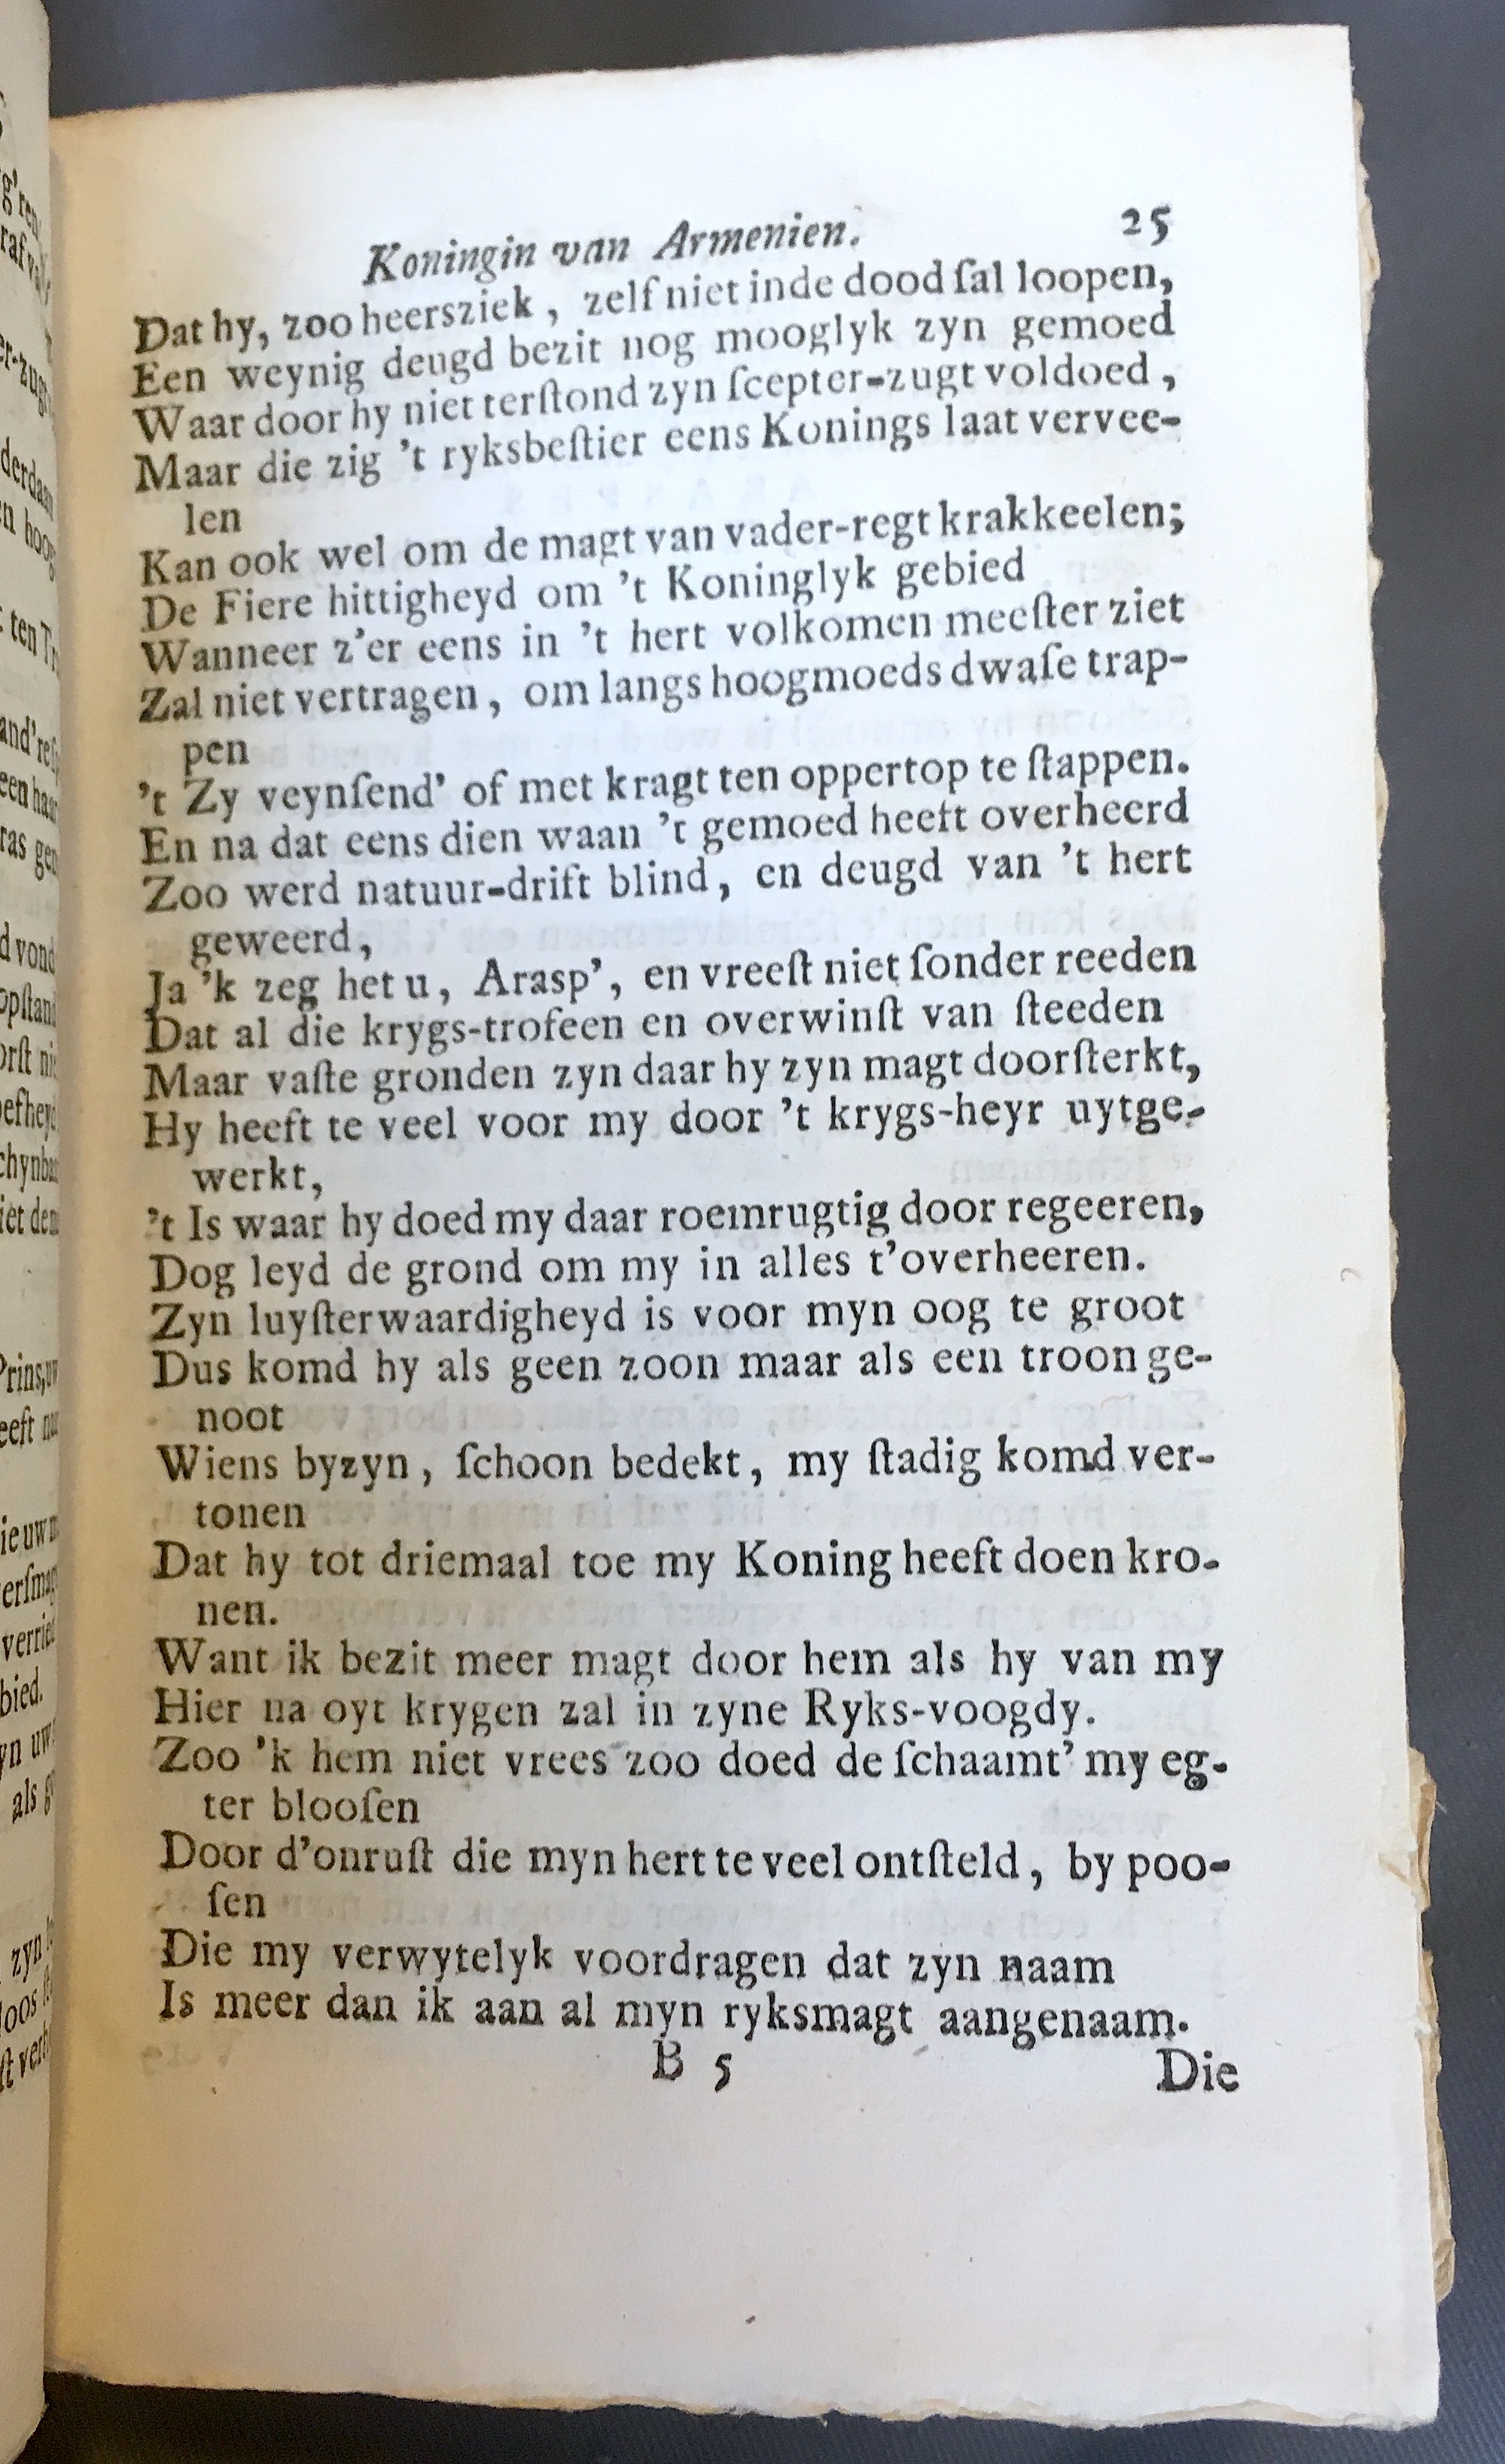 Koningin van Armenien. 25
Dat hy, zoo heersziek, zelf niet inde dood ſal loopen,
Een weynig deugd bezit nog mooglyk zyn gemoed
Waar door hy niet terſtond zyn ſcepter-zugt voldoed,
Maar die zig 't ryksbeſtier eens Konings laat vervee-
len
Kan ook wel om de magt van vader-regt krakkeelen;
De Fiere hittigheyd om 't Koninglyk gebied
Wanneer z'er eens in 't hert volkomen meeſter ziet
Zal niet vertragen, om langs hoogmoeds dwaſe trap-
pen
't Zy veynſend' of met kragt ten oppertop te ſtappen.
En na dat eens dien waan 't gemoed heeft overheerd
Zoo werd natuur-drift blind, en deugd van 't hert
geweerd,
Ja 'k zeg het u, Arasp', en vreeſt niet ſonder reeden
Dat al die krygs-trofeen en overwinſt van ſteeden
Maar vaſte gronden zyn daar hy zyn magt doorſterkt,
Hy heeft te veel voor my door 't krygs-heyr uytge-
werkt,
't Is waar hy doed my daar roemrugtig door regeeren,
Dog leyd de grond om my in alles t'overheeren.
Zyn luyſterwaardigheyd is voor myn oog te groot
Dus komd hy als geen zoon maar als een troon ge-
noot
Wiens byzyn, ſchoon bedekt, my ſtadig komd ver-
tonen
Dat hy tot driemaal toe my Koning heeft doen kro-
nen.
Want ik bezit meer magt door hem als hy van my
Hier na oyt krygen zal in zyne Ryks-voogdy.
Zoo 'k hem niet vrees zoo doed de ſchaamt' my eg-
ter blooſen
Door d'onruſt die myn hert te veel ontſteld, by poo-
ſen
Die my verwytelyk voordragen dat zyn naam
Is meer dan ik aan al myn ryksmagt aangenaam.
B 5 Die